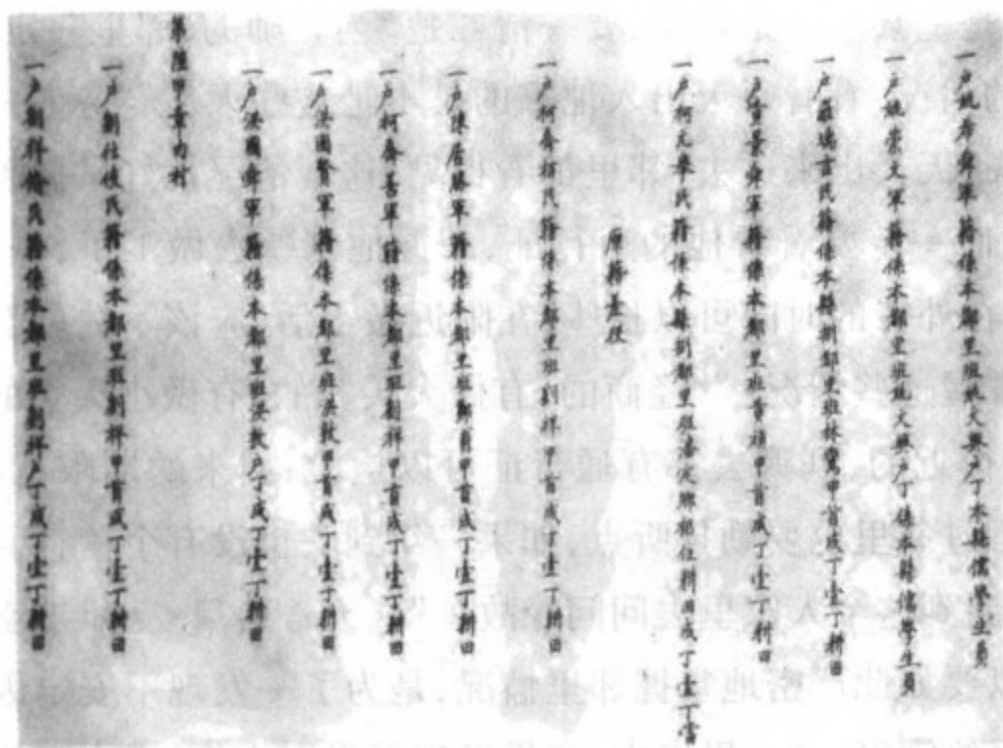 一户姚希舜軍籍係本都里班姚文興户丁本縣儒學生員
一户姚崇文軍籍係本都里班姚文興户丁係本縣儒學生員
一户羅瑞吉民籍係本縣割都里班林鶯甲首成丁壹丁耕田
一户曾景舜軍籍係本都里班曾福甲首成丁壹丁耕田
一户柯元奉民籍係本縣割都里班居住耕田成丁壹丁當
房籍差役
一户柯喬柏民籍係本都里班劉祥甲首成丁壹丁耕田
一户陳居勝軍籍係本都里班鄭甲首成丁壹丁耕田
一户柯喬善軍籍係本都里班劉祥甲首成丁壹丁耕田
一户洪國賢軍籍係本都里班洪敦甲首成丁壹丁耕田
一户洪國舜軍籍係本都里班洪敦户丁成丁壹丁耕田
第陸甲章內村
一户劉仕俊民籍係本都里班劉祥甲首成丁壹丁耕田
一户劉祥餘民籍係本都里班劉祥户丁成丁壹丁耕田